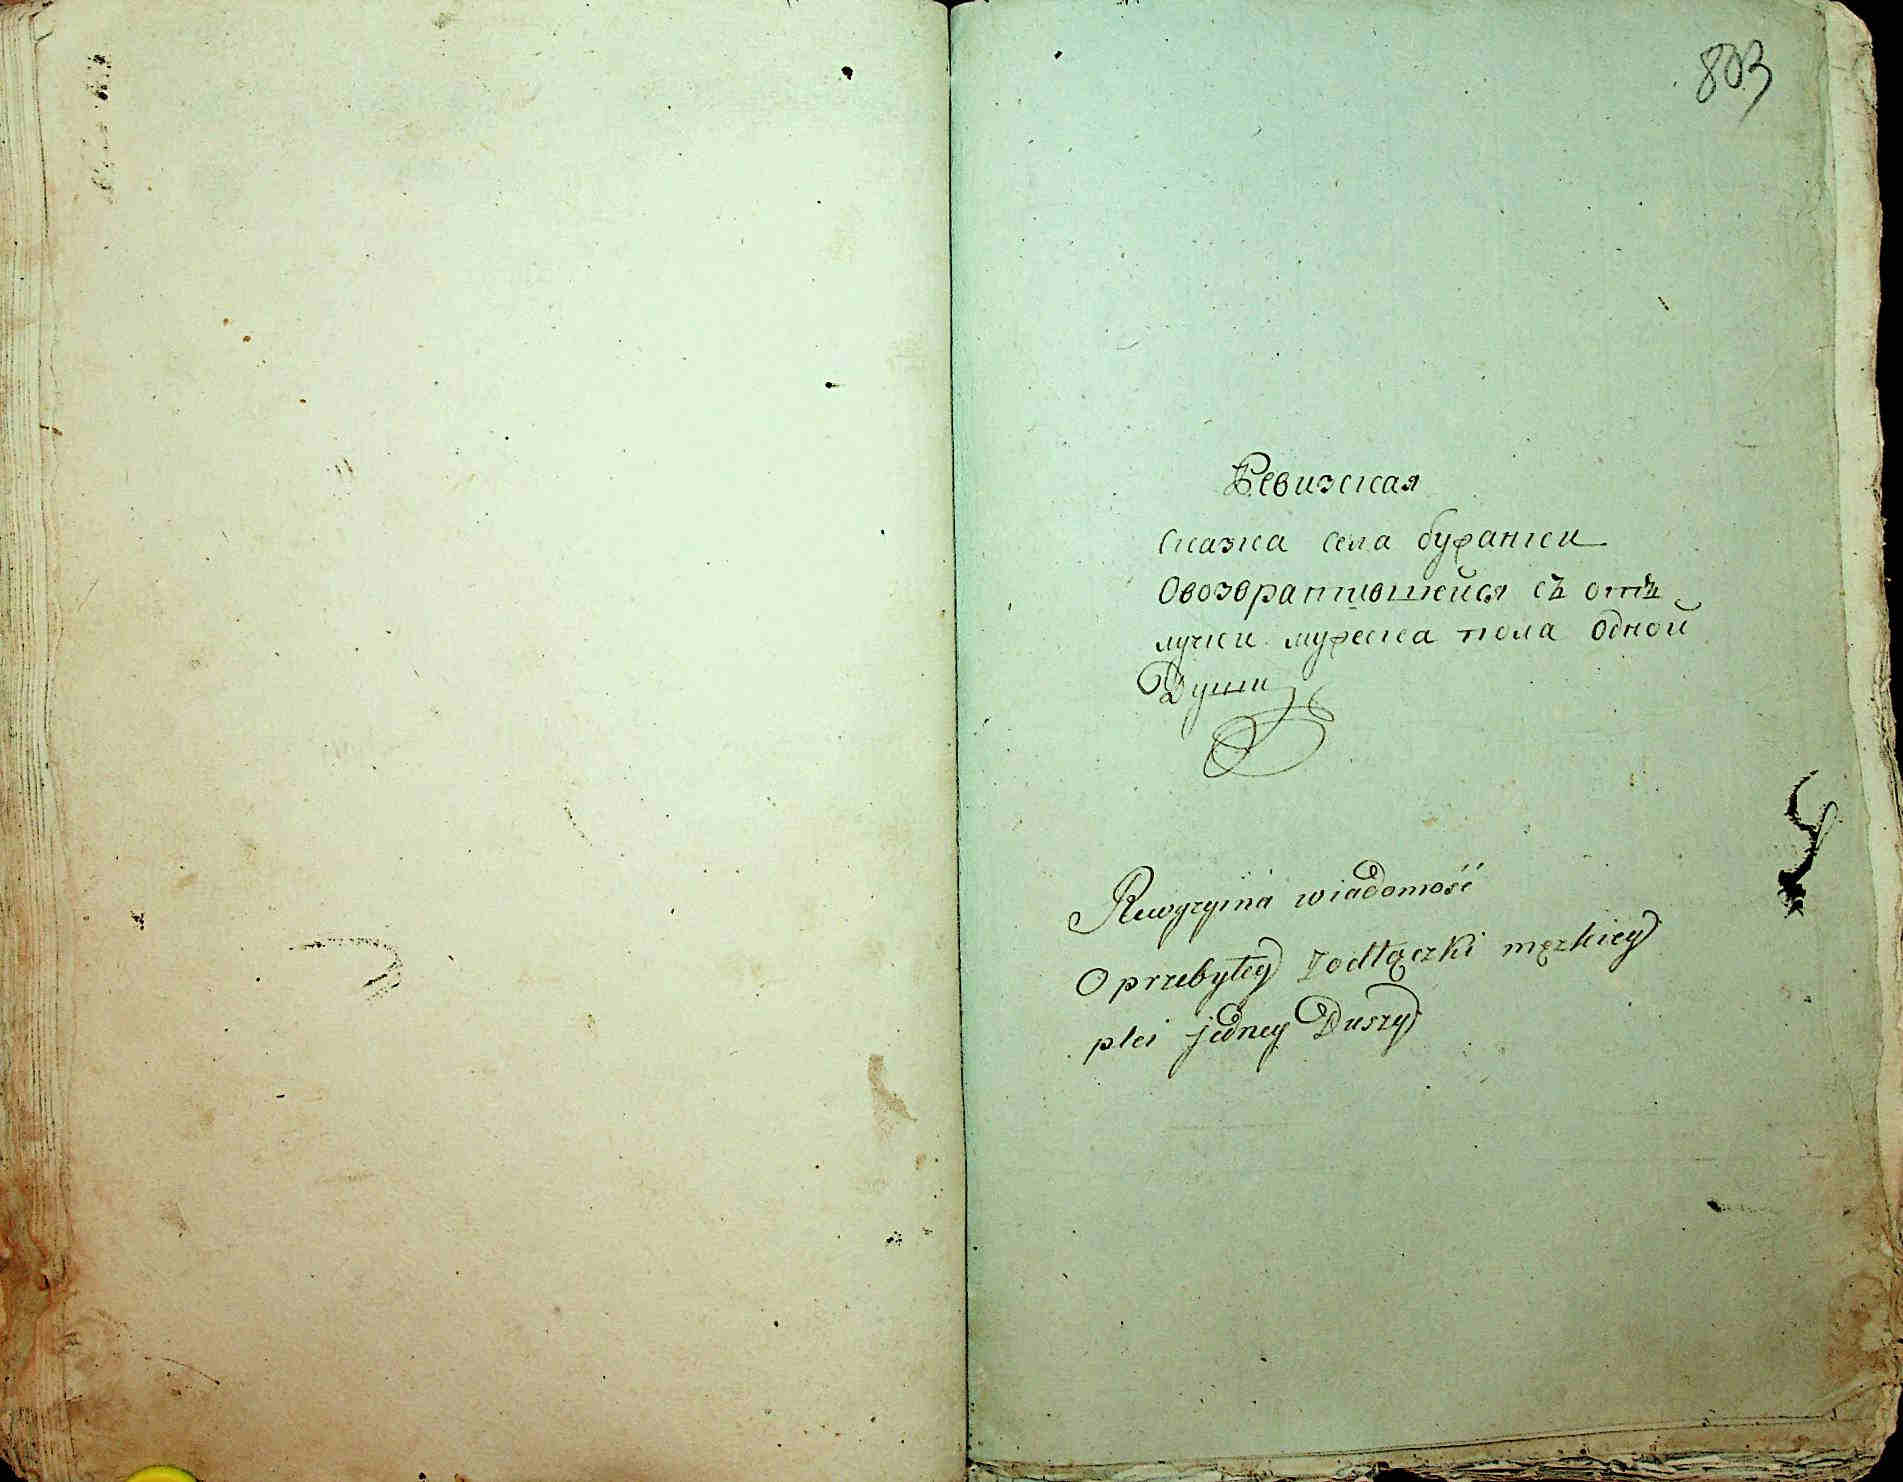 803
Ревизская
сказка села буранки
Овозвратившейся съ отъ
лучки мужеска пола одной
Души
Rewyzyina wiadomość
O przebyłey zodłączki męzkiey
płci jedney Duszy